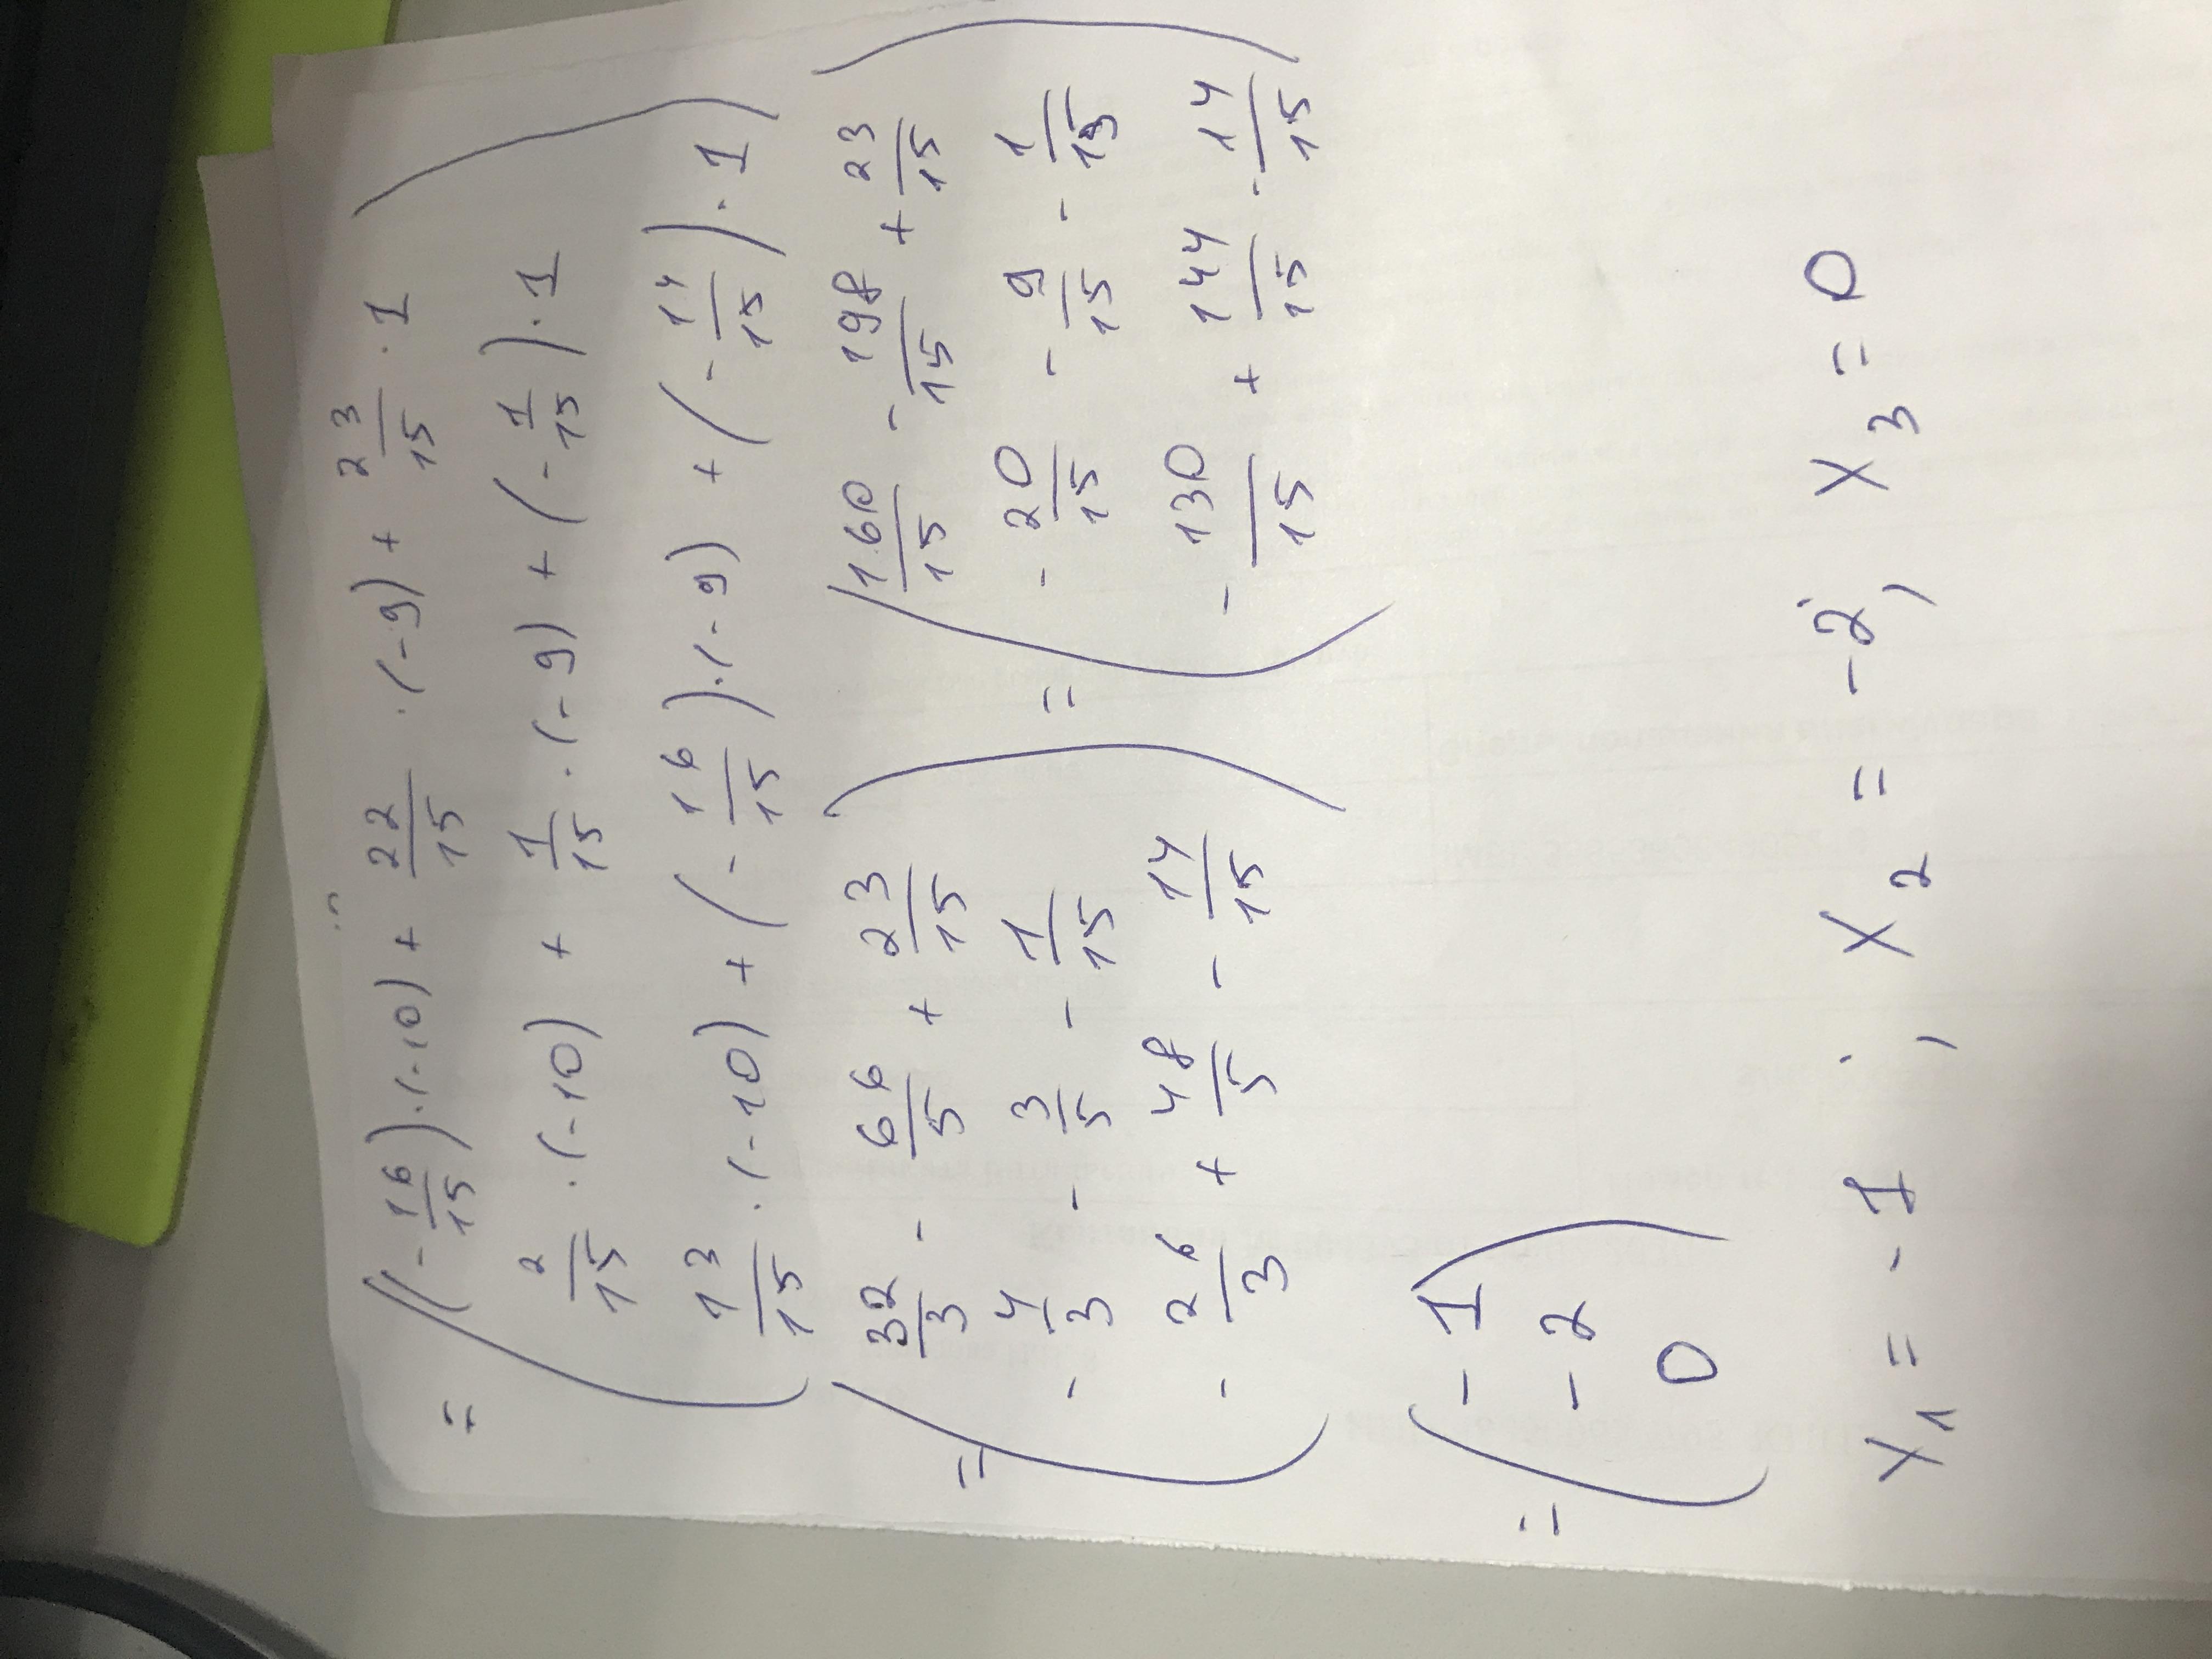 = ((-16/15)·(-10) + 22/15 ·(-9) + 23/15 ·1
2/15 ·(-10) + 1/15 ·(-9) + (-1/15)·1
13/15 ·(-10) + (-16/15)·(-9) + (-14/15)·1)
= (32/3 - 66/5 + 23/15
-4/3 - 3/5 - 1/15
-26/3 + 48/5 - 14/15)
= (160/15 - 198/15 + 23/15
-20/15 - 9/15 - 1/15
-130/15 + 144/15 - 14/15)
= (-1
-2
0)
X1 = -1 ; X2 = -2; X3 = 0